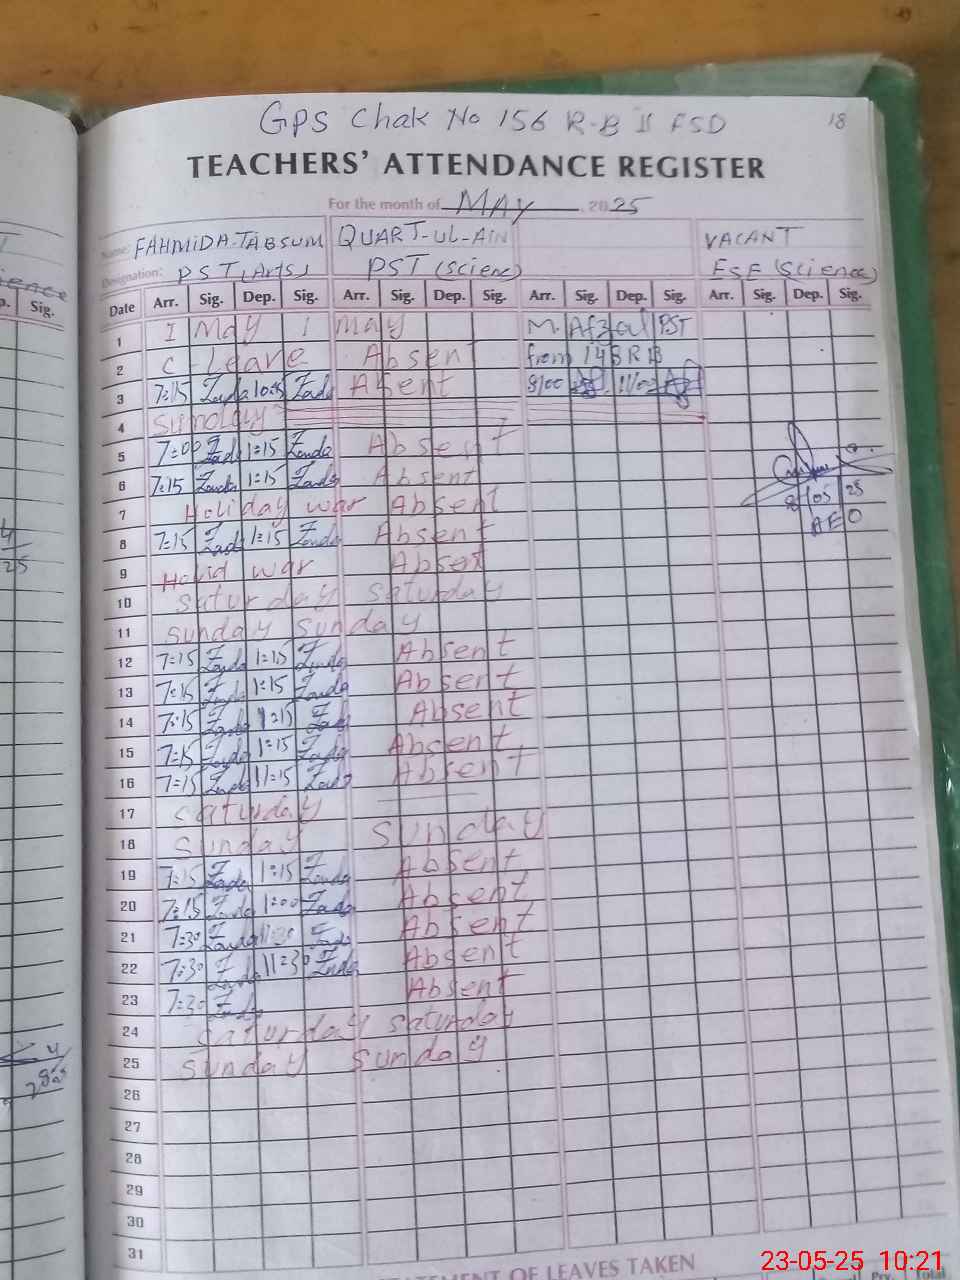 GPS Chak No 156 R-B II FSD 18
TEACHERS' ATTENDANCE REGISTER
For the month of MAY 2025
Name: FAHMIDA-TABSUM QUART-UL-AIN VACANT
Designation: PST (Arts) PST (Scienc) ESE (Science)
Date Arr. Sig. Dep. Sig. Arr. Sig. Dep. Sig. Arr. Sig. Dep. Sig. Arr. Sig. Dep. Sig.
1 I May 1 May M. Afzal PST
2 C-Leave Absent from 148 RB
3 7:15 Absent 8/00 11/00
4 Sunday
5 7=00 1=15 Absent
6 7:15 1:15 Absent
7 Holiday war Absent
8 7=15 1=15 Absent
9 Holid war Absent
10 Saturday Saturday
11 Sunday Sunday
12 7=15 1=15 Absent
13 7=15 1=15 Absent
14 7=15 1=15 Absent
15 7=15 1=15 Absent
16 7=15 1=15 Absent
17 Saturday
18 Sunday Sunday
19 7=15 1=15 Absent
20 7=15 1=00 Absent
21 7=30 Absent
22 7=30 11=30 Absent
23 7=30 Absent
24 Saturday Saturday
25 Sunday Sunday
26
27
28
29
30
31
8/05 25
AEO
OF LEAVES TAKEN
Total
23-05-25 10:21